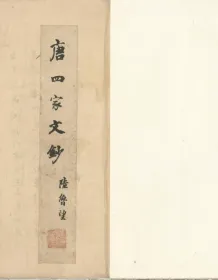 唐四家文鈔
陸魯望